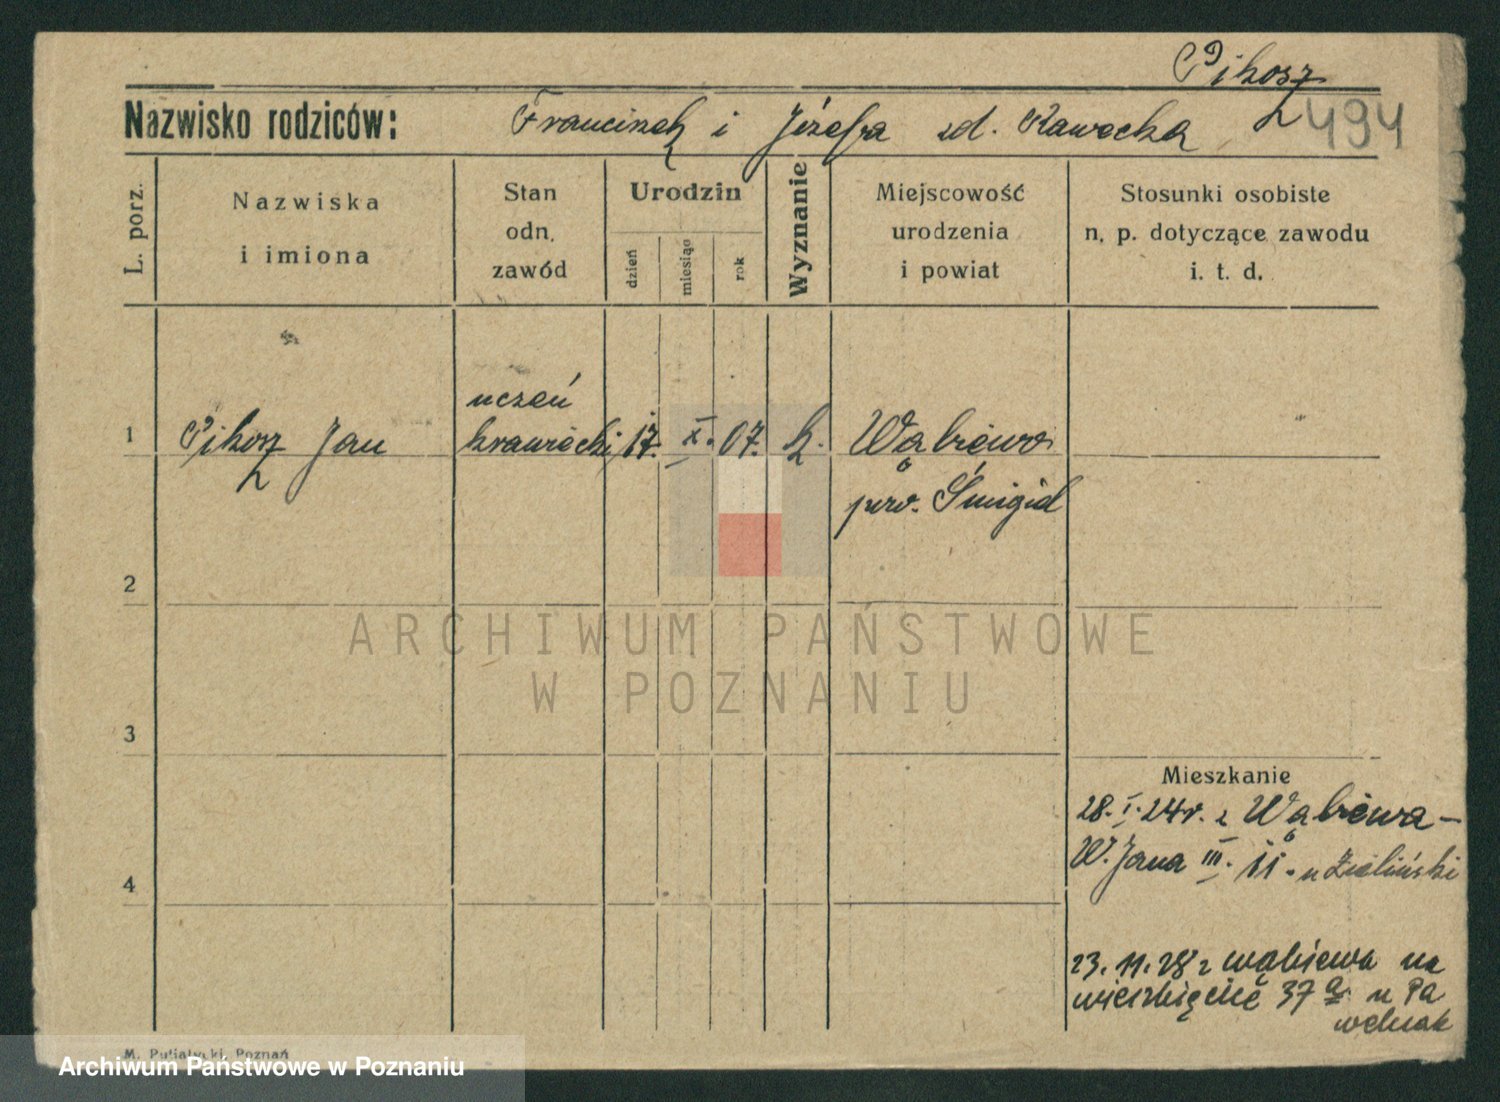 Pikosz
494
Nazwisko rodziców: Franciszek i Józefa zd. Kawecka
L. porz.
Nazwiska
i imiona
Stan
odn.
zawód
Urodzin
dzień
miesiąc
rok
Wyznanie
Miejscowość
urodzenia
i powiat
Stosunki osobiste
n. p. dotyczące zawodu
i. t. d.
1
Pikosz Jan
uczeń
krawiecki
17. X. 07. k.
Wąbiewo
pow. Śmigiel
2
3
4
Mieszkanie
28. I. 24 r. z Wąbiewa –
W. Jana III. 11. u Zieliński
23. 11. 28 z Wąbiewa na
wierzbięcice 37 a. u Pa
welczak
M. Putiatycki, Poznań
ARCHIWUM PAŃSTWOWE
W POZNANIU
Archiwum Państwowe w Poznaniu